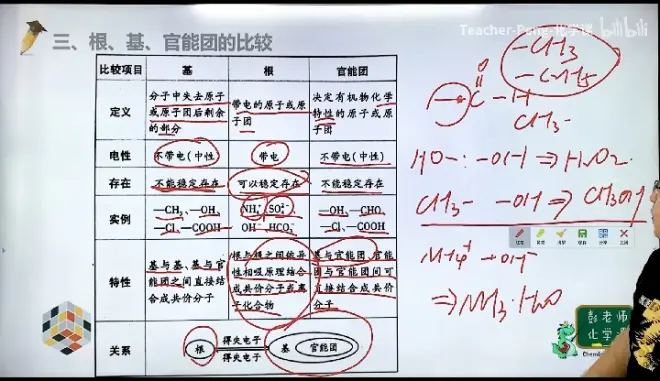 Teacher-Peng-化学课 bilibili
三、根、基、官能团的比较
比较项目 基 根 官能团
定义 分子中失去原子或原子团后剩余的部分 带电的原子或原子团 决定有机物化学特性的原子或原子团
电性 不带电(中性) 带电 不带电(中性)
存在 不能稳定存在 可以稳定存在 不能稳定存在
实例 —CH₃、—OH、—Cl、—COOH NH₄⁺、SO₄²⁻、OH⁻、HCO₃⁻ —OH、—CHO、—Cl、—COOH
特性 基与基、基与官能团之间直接结合成共价分子 根与根之间依异性相吸原理结合成共价分子或离子化合物 基与官能团、官能团与官能团间可直接结合成共价分子
关系 根 得失电子 得失电子 基 官能团
-CH3
O
C-H
CH3-
HO- : -OH ⇒ H2O2
CH3- -OH ⇒ CH3OH
NH4+ + OH-
⇒ NH3·H2O
彭老师
化学课